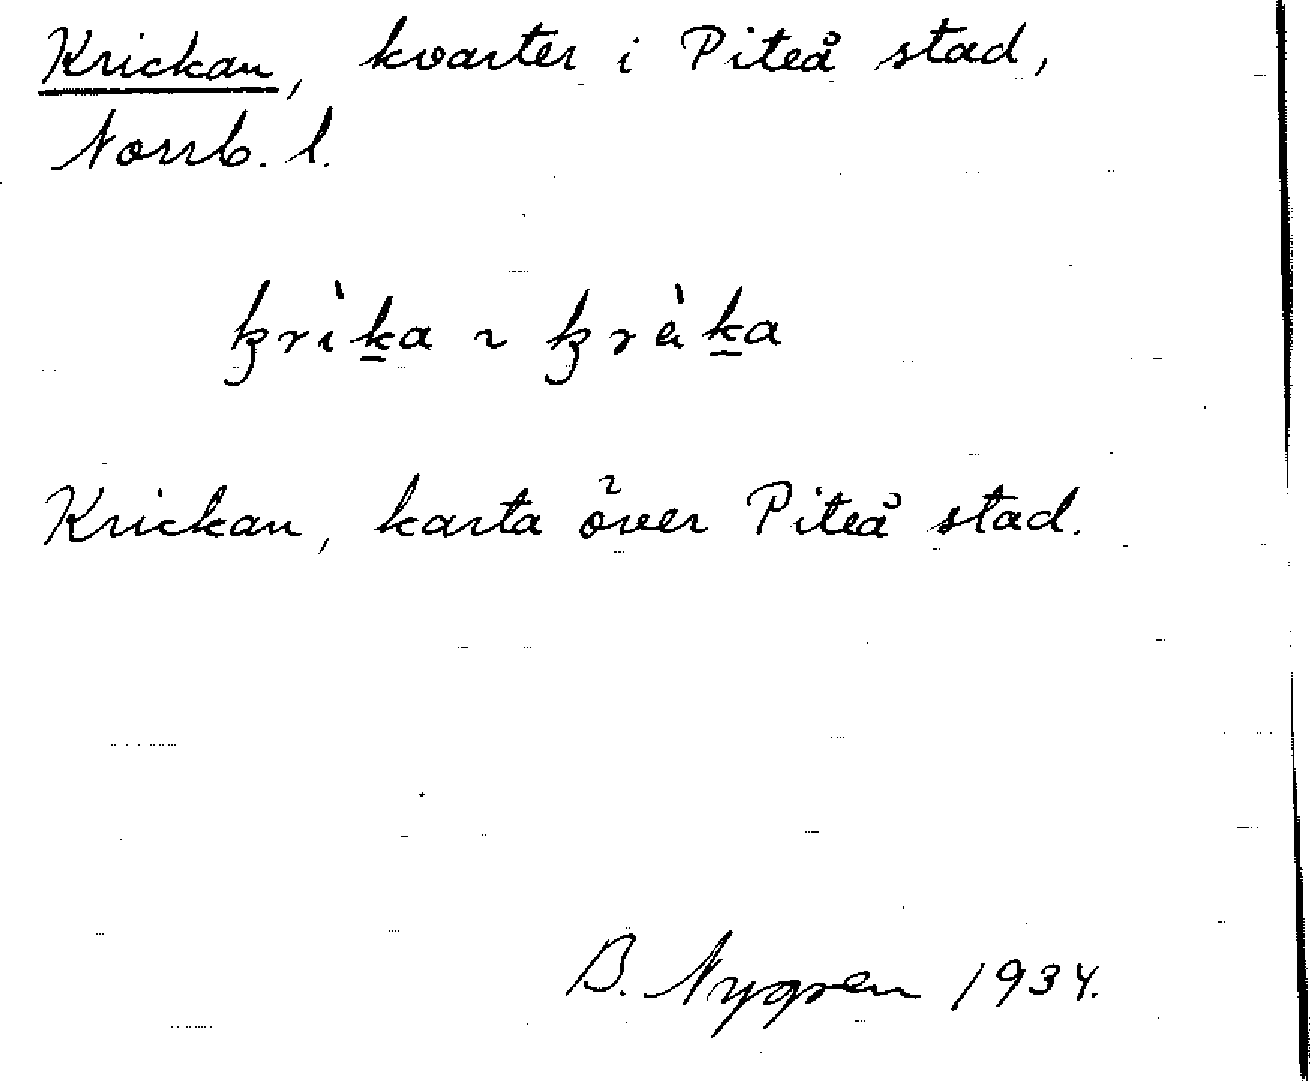 Krickan, kvarter i Piteå stad,
Norrb. l.
kri̇̀ka ~ krèka
Krickan, karta över Piteå stad.
B. Nygren 1934.